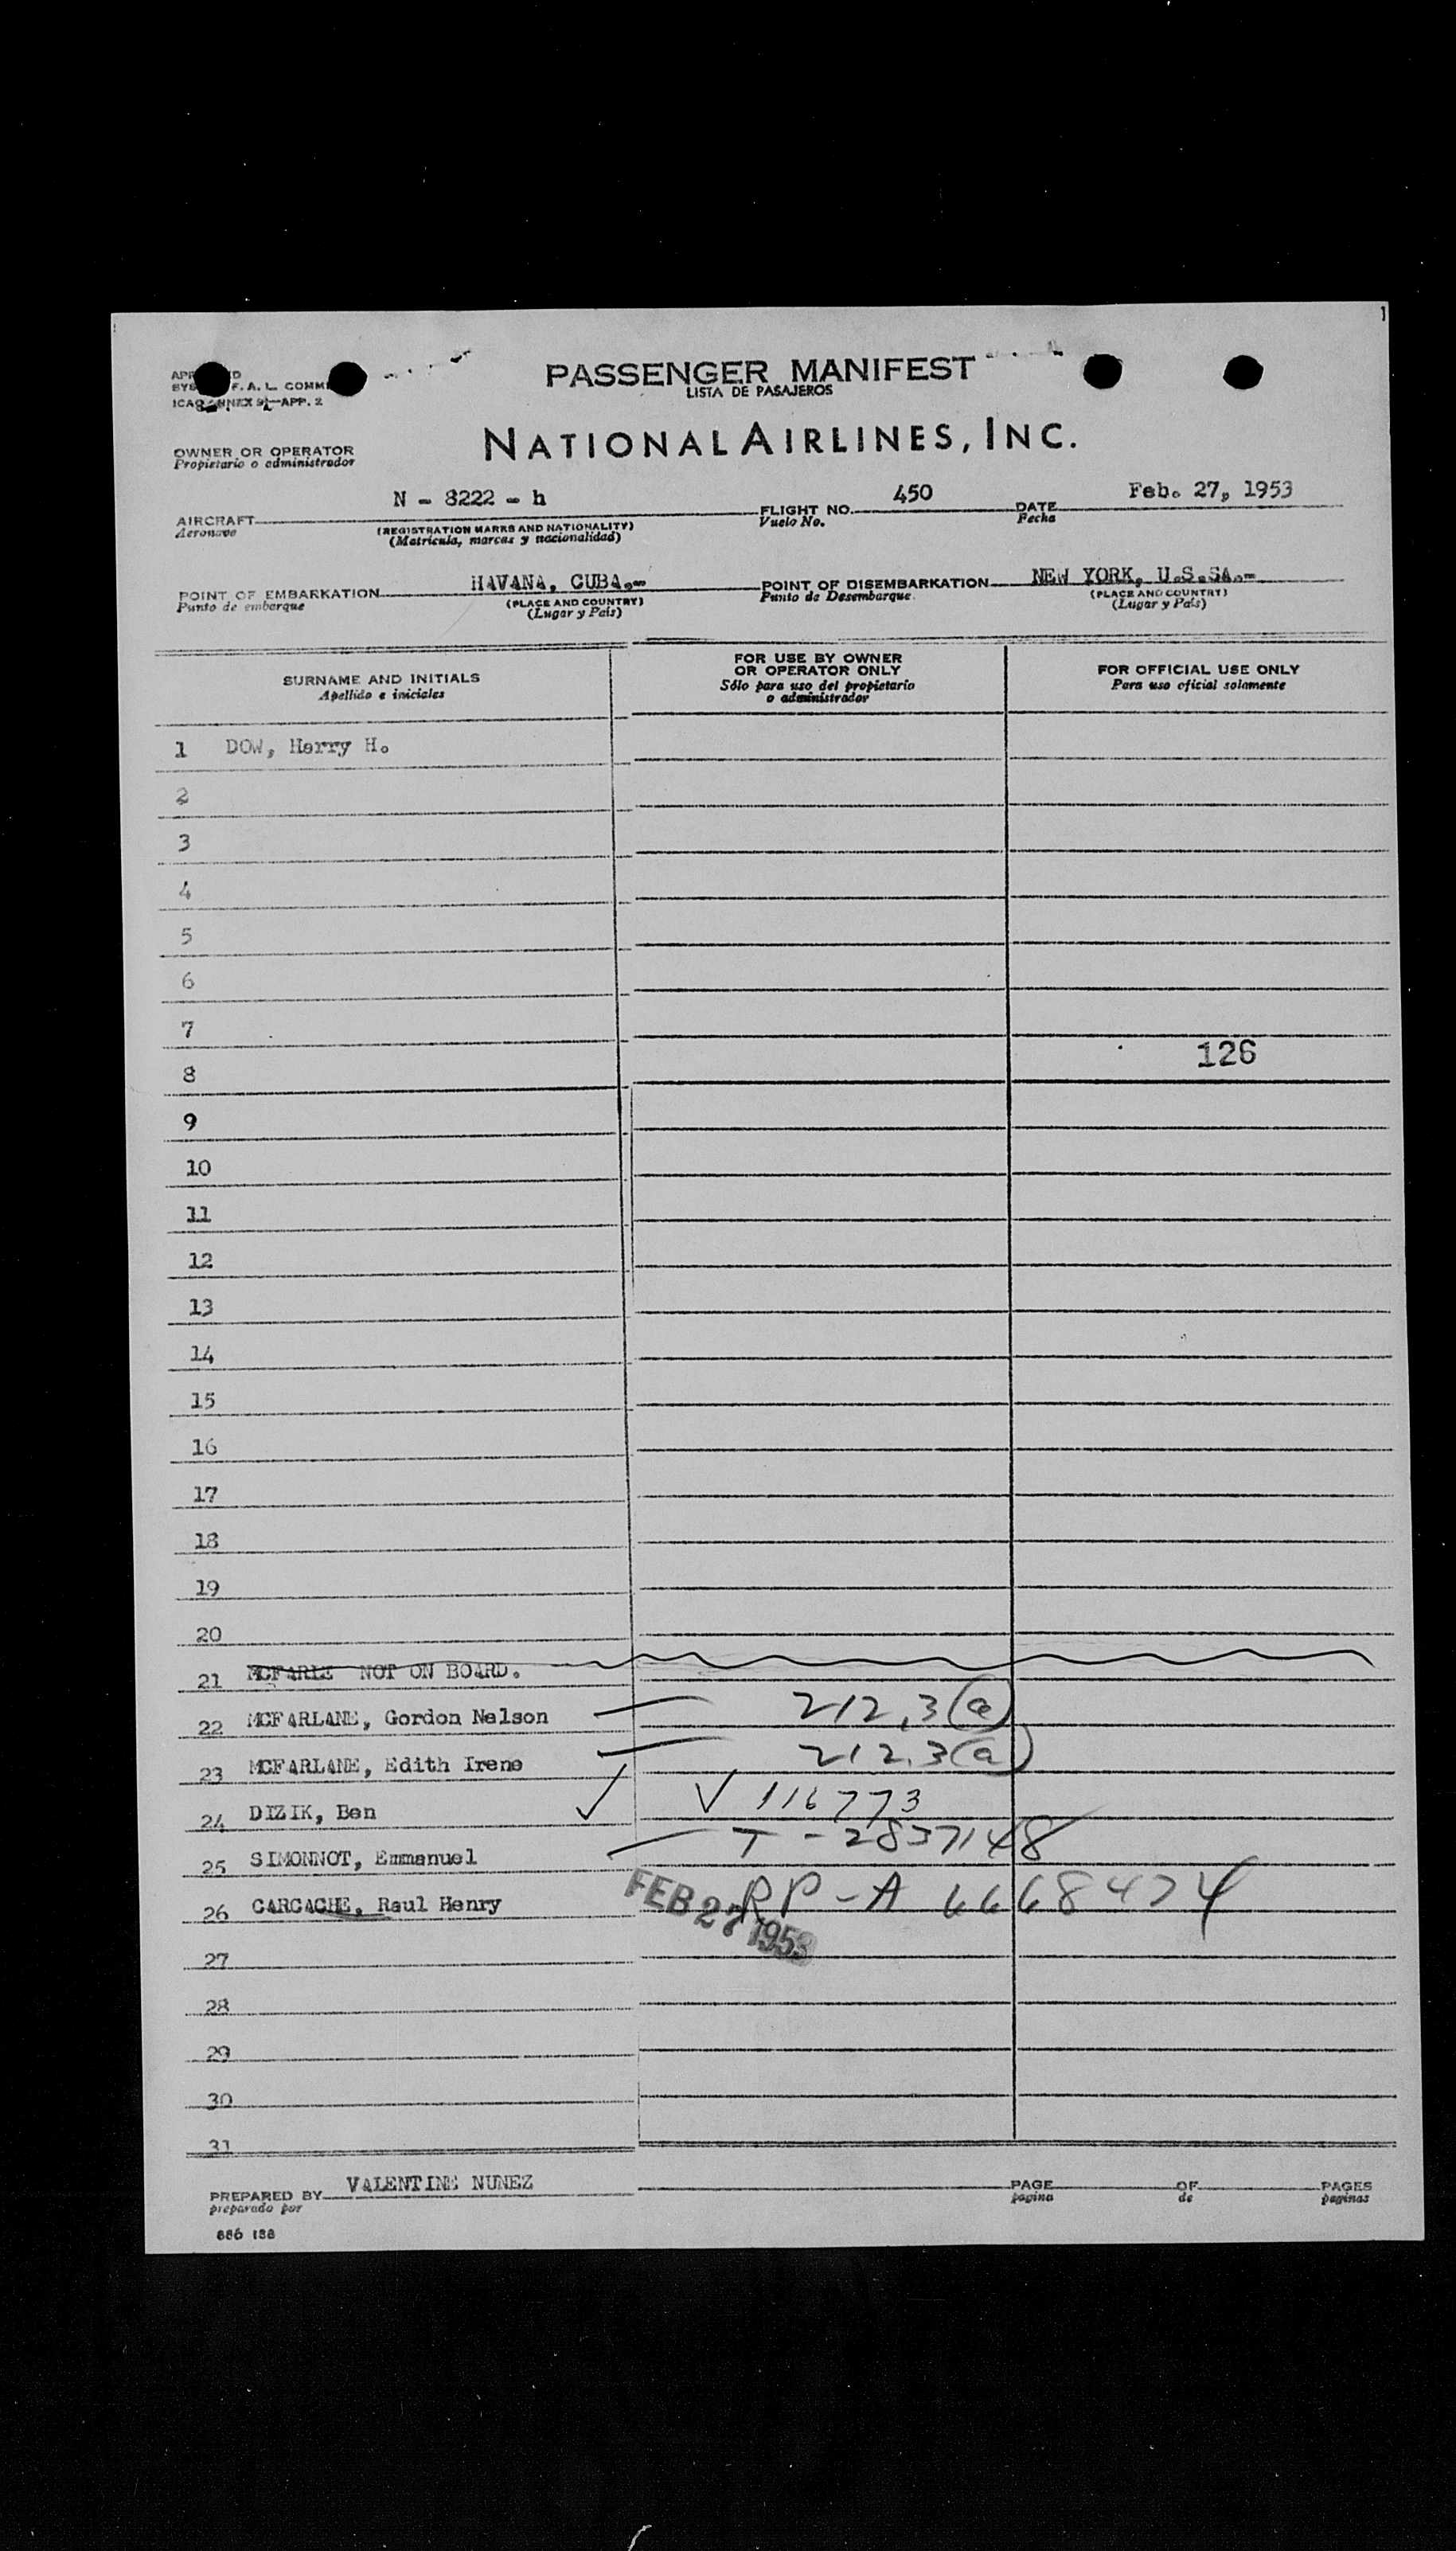 PASSENGER MANIFEST
LISTA DE PASAJEROS
F. A. L. COMM
ICAO ANNEX 9—APP. 2
NATIONAL AIRLINES, INC.
OWNER OR OPERATOR
Propietario o administrador
N - 8222 - h 450 Feb. 27, 1953
AIRCRAFT FLIGHT NO. DATE
Aeronave (REGISTRATION MARKS AND NATIONALITY) Vuelo No. Fecha
(Matrícula, marcas y nacionalidad)
HAVANA, CUBA.- NEW YORK, U.S.SA.-
POINT OF EMBARKATION POINT OF DISEMBARKATION
Punto de embarque (PLACE AND COUNTRY) Punto de Desembarque (PLACE AND COUNTRY)
(Lugar y País) (Lugar y País)
SURNAME AND INITIALS FOR USE BY OWNER OR OPERATOR ONLY FOR OFFICIAL USE ONLY
Apellido e iniciales Sólo para uso del propietario o administrador Para uso oficial solamente
1 DOW, Harry H.
2
3
4
5
6
7
8 126
9
10
11
12
13
14
15
16
17
18
19
20
21 MCFARLE NOT ON BOARD.
22 MCFARLANE, Gordon Nelson 212.3(a)
23 MCFARLANE, Edith Irene 212.3(a)
24 DIZIK, Ben ✓ ✓ 116773
25 SIMONNOT, Emmanuel T-2837148
26 CARCACHE, Raul Henry RP-A 6668474
FEB 27 1953
27
28
29
30
31
PREPARED BY VALENTINE NUNEZ PAGE OF PAGES
preparado por página de páginas
686 188